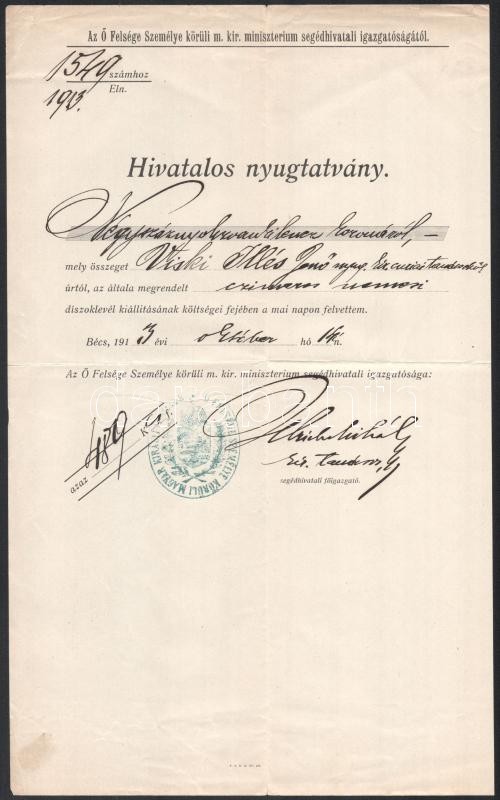 Az Ő Felsége Személye körüli m. kir. miniszterium segédhivatali igazgatóságától.
1549 számhoz
1913. Eln.
Hivatalos nyugtatvány.
Négyszáznyolcvankilencz koronáról, –
mely összeget Viski Illés Jenő nyug.
úrtól, az általa megrendelt czimeres nemesi
diszoklevél kiállításának költségei fejében a mai napon felvettem.
Bécs, 1913 évi október hó 14n.
Az Ő Felsége Személye körüli m. kir. miniszterium segédhivatali igazgatósága:
azaz 489 K
KÖRÜLI MAGYAR KIR.
segédhivatali főigazgató.